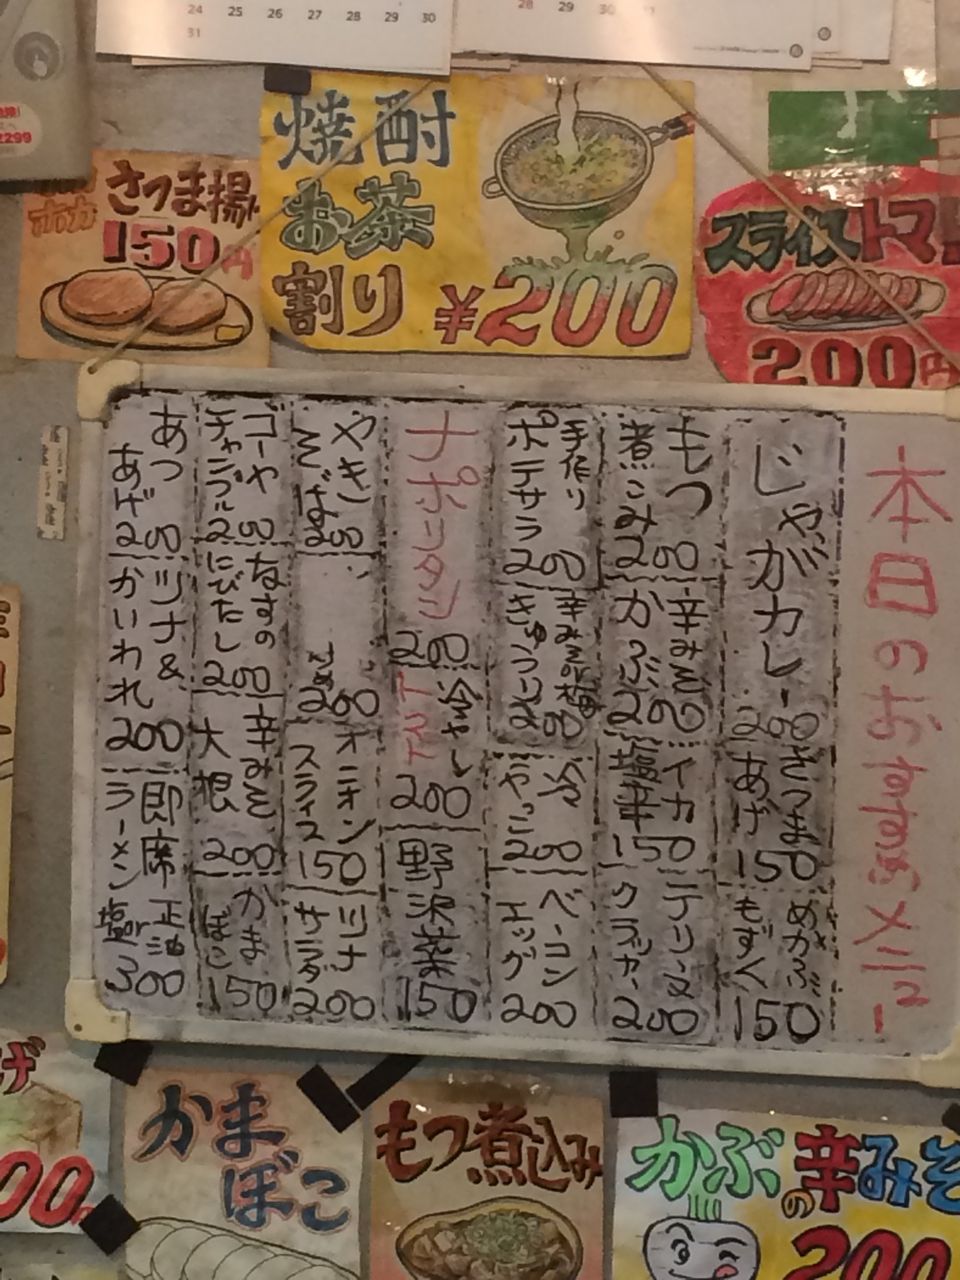 24 25 26 27 28 29 30
31
28 29 30
2299
ホカ
さつま揚
150円
焼酎
お茶
割り
¥200
スライストマ
200円
本日のおすすめメニュー
じゃがカレー
200
さつま
あげ
150
めかぶ
もずく
150
もつ
煮こみ
200
辛みそ
かぶ
200
イカ
塩辛
150
クラッカー
200
手作り
ポテサラ
200
きゅうり
200
冷
やっこ
200
ベーコン
エッグ
200
ナポリタン
200
冷やし
トマト
200
野沢菜
150
やき
そば
200
200
オニオン
スライス
150
ツナ
サラダ
200
ゴーヤ
チャンプル
200
なすの
にびたし
200
辛みそ
大根
200
かま
ぼこ
150
あつ
あげ
200
ツナ&
かいわれ
200
即席
ラーメン
正油
塩
300
げ
00円
かま
ぼこ
もつ煮込み
かぶの辛みそ
200